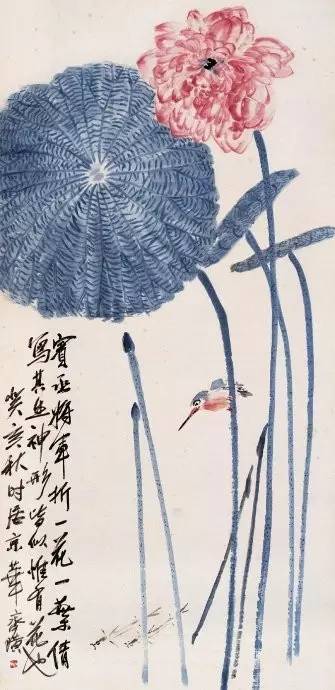 賓丞将軍折一花一葉倩
寫其神形皆似惟有花也
癸亥秋时居京華齊璜